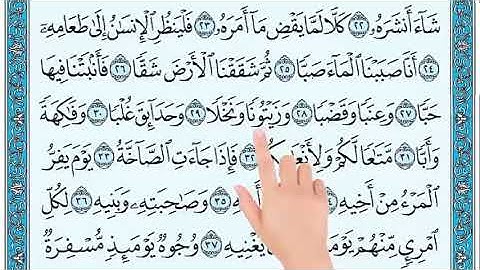 شَآءَ أَنشَرَهُۥ ٢٢ كَلَّا لَمَّا يَقْضِ مَآ أَمَرَهُۥ ٢٣ فَلْيَنظُرِ ٱلْإِنسَٰنُ إِلَىٰ طَعَامِهِۦٓ
٢٤ أَنَّا صَبَبْنَا ٱلْمَآءَ صَبًّا ٢٥ ثُمَّ شَقَقْنَا ٱلْأَرْضَ شَقًّا ٢٦ فَأَنۢبَتْنَا فِيهَا
حَبًّا ٢٧ وَعِنَبًا وَقَضْبًا ٢٨ وَزَيْتُونًا وَنَخْلًا ٢٩ وَحَدَآئِقَ غُلْبًا ٣٠ وَفَٰكِهَةً
وَأَبًّا ٣١ مَّتَٰعًا لَّكُمْ ٣٢ فَإِذَا جَآءَتِ ٱلصَّآخَّةُ ٣٣ يَوْمَ يَفِرُّ
ٱلْمَرْءُ مِنْ أَخِيهِ ٣٥ وَصَٰحِبَتِهِۦ وَبَنِيهِ ٣٦ لِكُلِّ
ٱمْرِئٍ مِّنْهُمْ يُغْنِيهِ ٣٧ وُجُوهٌ يَوْمَئِذٍ مُّسْفِرَةٌ